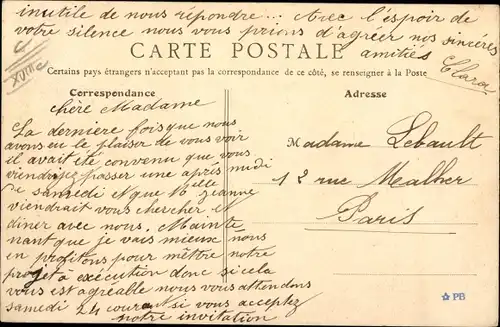 inutile de nous répondre... Avec l'espoir de
votre silence nous vous prions d'agréer nos sincères
amitiés
Clara
XVIIIe
CARTE POSTALE
Certains pays étrangers n'acceptant pas la correspondance de ce côté, se renseigner à la Poste
Correspondance
chère Madame
La dernière fois que nous
avons eu le plaisir de vous voir
il avait été convenu que vous
viendriez passer une après midi
le samedi et que Melle Jeanne
viendrait vous chercher et
diner avec nous. Mainte
nant que je vais mieux nous
en profitons pour mettre notre
projet à exécution donc si cela
vous est agréable nous vous attendons
samedi 24 courant si vous acceptez
notre invitation
Adresse
Madame Lebault
12 rue Malher
Paris
PB